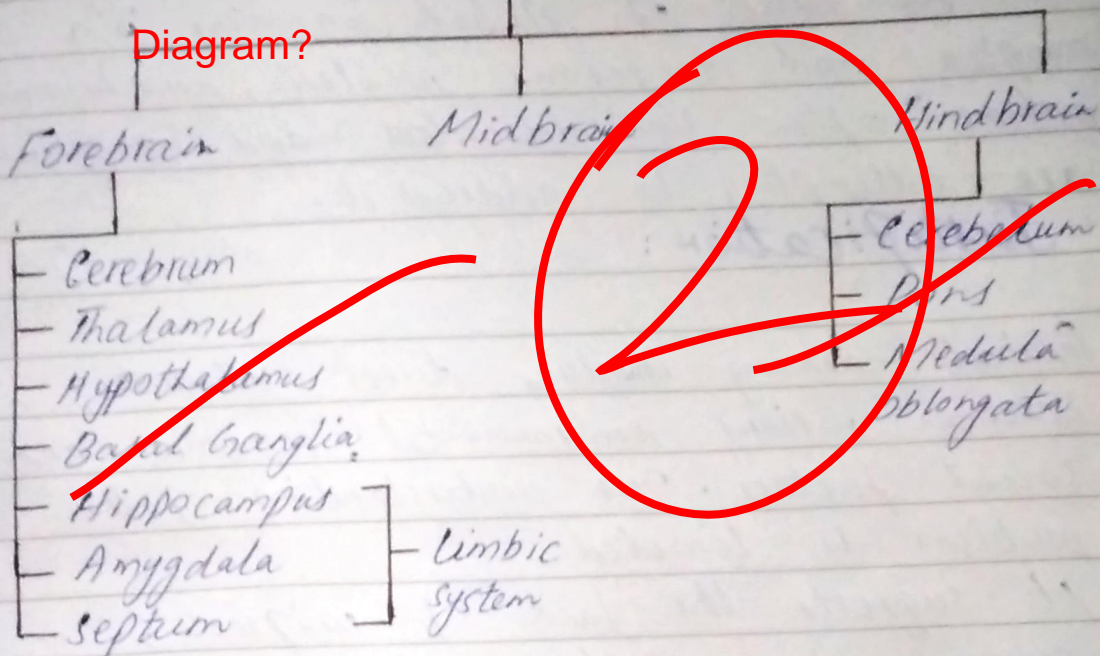 Diagram?
Forebrain Midbrain Hindbrain
Cerebrum
Thalamus
Hypothalamus
Basal Ganglia
Hippocampus
Amygdala
Septum
Limbic
system
Cerebelum
Pons
Medula
oblongata
2